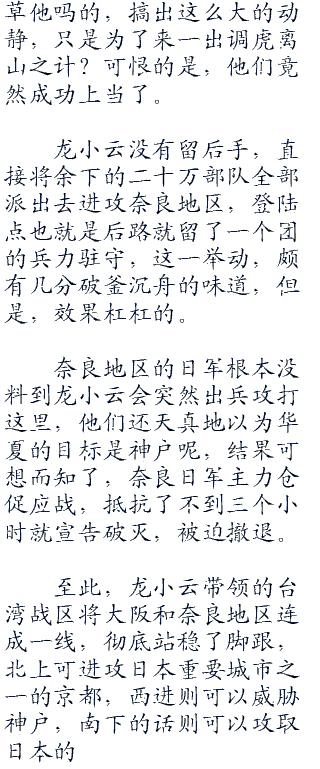 草他吗的，搞出这么大的动
静，只是为了来一出调虎离
山之计？可恨的是，他们竟
然成功上当了。
龙小云没有留后手，直
接将余下的二十万部队全部
派出去进攻奈良地区，登陆
点也就是后路就留了一个团
的兵力驻守，这一举动，颇
有几分破釜沉舟的味道，但
是，效果杠杠的。
奈良地区的日军根本没
料到龙小云会突然出兵攻打
这里，他们还天真地以为华
夏的目标是神户呢，结果可
想而知了，奈良日军主力仓
促应战，抵抗了不到三个小
时就宣告破灭，被迫撤退。
至此，龙小云带领的台
湾战区将大阪和奈良地区连
成一线，彻底站稳了脚跟，
北上可进攻日本重要城市之
一的京都，西进则可以威胁
神户，南下的话则可以攻取
日本的